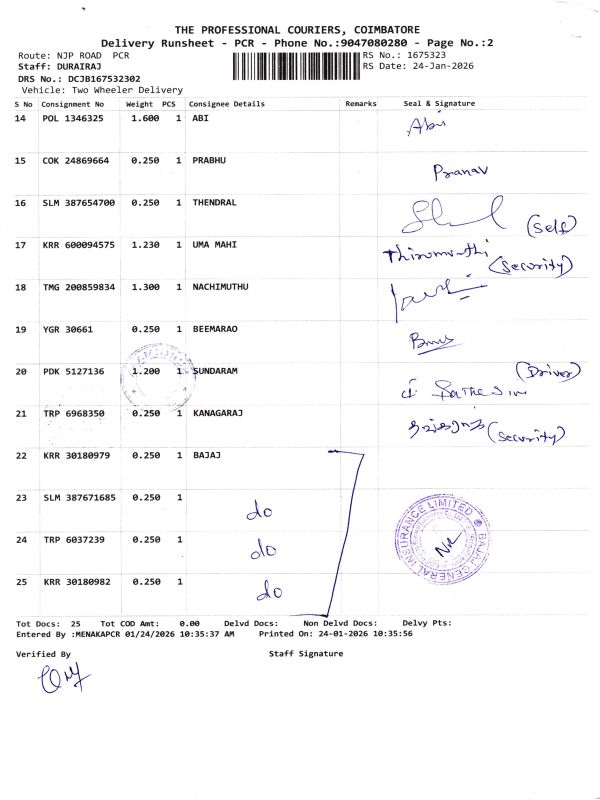 THE PROFESSIONAL COURIERS, COIMBATORE
Delivery Runsheet - PCR - Phone No.:9047080280 - Page No.:2
Route: NJP ROAD PCR RS No.: 1675323
Staff: DURAIRAJ RS Date: 24-Jan-2026
DRS No.: DCJB167532302
Vehicle: Two Wheeler Delivery
S No Consignment No Weight PCS Consignee Details Remarks Seal & Signature
14 POL 1346325 1.600 1 ABI Abi
15 COK 24869664 0.250 1 PRABHU Pranav
16 SLM 387654700 0.250 1 THENDRAL (Self)
17 KRR 600094575 1.230 1 UMA MAHI (Security)
18 TMG 200859834 1.300 1 NACHIMUTHU
19 YGR 30661 0.250 1 BEEMARAO
20 PDK 5127136 1.200 1 SUNDARAM (Driver)
21 TRP 6968350 0.250 1 KANAGARAJ (Security)
22 KRR 30180979 0.250 1 BAJAJ
23 SLM 387671685 0.250 1 do
24 TRP 6037239 0.250 1 do
25 KRR 30180982 0.250 1 do
BAJAJ GENERAL INSURANCE LIMITED
Tot Docs: 25 Tot COD Amt: 0.00 Delvd Docs: Non Delvd Docs: Delvy Pts:
Entered By :MENAKAPCR 01/24/2026 10:35:37 AM Printed On: 24-01-2026 10:35:56
Verified By Staff Signature